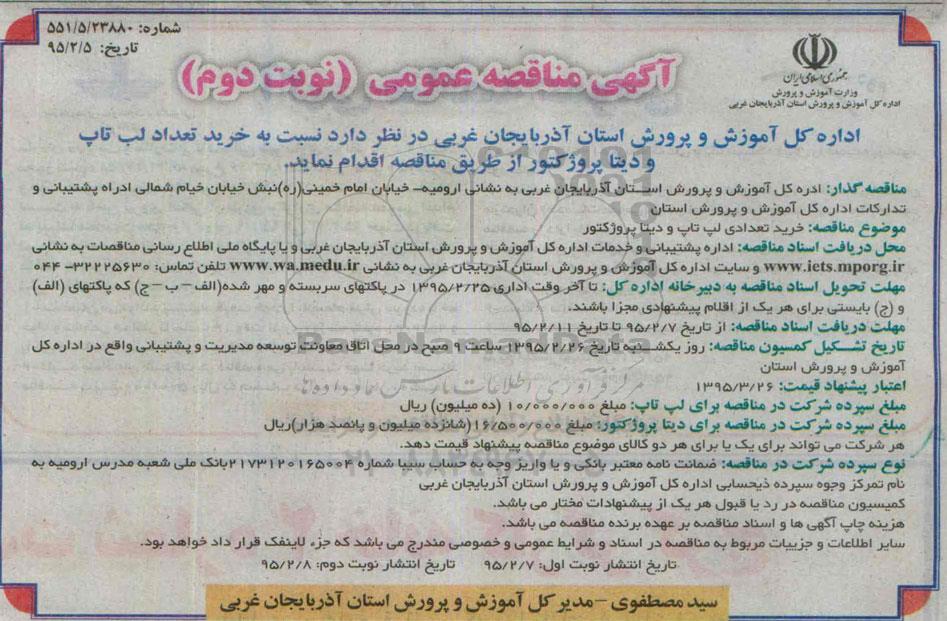 شماره: ۵۵۱/۵/۲۳۸۸۰
تاریخ: ۹۵/۲/۵
جمهوری اسلامی ایران
وزارت آموزش و پرورش
اداره کل آموزش و پرورش استان آذربایجان غربی
آگهی مناقصه عمومی (نوبت دوم)
اداره کل آموزش و پرورش استان آذربایجان غربی در نظر دارد نسبت به خرید تعداد لب تاپ
و دیتا پروژکتور از طریق مناقصه اقدام نماید.
مناقصه گذار: ادره کل آموزش و پرورش استان آذربایجان غربی به نشانی ارومیه- خیابان امام خمینی(ره)نبش خیابان خیام شمالی ادراه پشتیبانی و
تدارکات اداره کل آموزش و پرورش استان
موضوع مناقصه: خرید تعدادی لپ تاپ و دیتا پروژکتور
محل دریافت اسناد مناقصه: اداره پشتیبانی و خدمات اداره کل آموزش و پرورش استان آذربایجان غربی و یا پایگاه ملی اطلاع رسانی مناقصات به نشانی
www.iets.mporg.ir و سایت اداره کل آموزش و پرورش استان آذربایجان غربی به نشانی www.wa.medu.ir تلفن تماس: ۳۲۲۲۵۶۳۰-۰۴۴
مهلت تحویل اسناد مناقصه به دبیرخانه اداره کل: تا آخر وقت اداری ۱۳۹۵/۲/۲۵ در پاکتهای سربسته و مهر شده(الف-ب-ج) که پاکتهای (الف)
و (ج) بایستی برای هر یک از اقلام پیشنهادی مجزا باشند.
مهلت دریافت اسناد مناقصه: از تاریخ ۹۵/۲/۷ تا تاریخ ۹۵/۲/۱۱
تاریخ تشکیل کمسیون مناقصه: روز یکشنبه تاریخ ۱۳۹۵/۲/۲۶ ساعت ۹ صبح در محل اتاق معاونت توسعه مدیریت و پشتیبانی واقع در اداره کل
آموزش و پرورش استان
اعتبار پیشنهاد قیمت: ۱۳۹۵/۳/۲۶
مبلغ سپرده شرکت در مناقصه برای لپ تاپ: مبلغ ۱۰/۰۰۰/۰۰۰ (ده میلیون) ریال
مبلغ سپرده شرکت در مناقصه برای دیتا پروژکتور: مبلغ ۱۶/۵۰۰/۰۰۰(شانزده میلیون و پانصد هزار)ریال
هر شرکت می تواند برای یک یا برای هر دو کالای موضوع مناقصه پیشنهاد قیمت دهد.
نوع سپرده شرکت در مناقصه: ضمانت نامه معتبر بانکی و یا واریز وجه به حساب سیبا شماره ۲۱۷۳۱۲۰۱۶۵۰۰۴بانک ملی شعبه مدرس ارومیه به
نام تمرکز وجوه سپرده ذیحسابی اداره کل آموزش و پرورش استان آذربایجان غربی
کمیسیون مناقصه در رد یا قبول هر یک از پیشنهادات مختار می باشد.
هزینه چاپ آگهی ها و اسناد مناقصه بر عهده برنده مناقصه می باشد.
سایر اطلاعات و جزییات مربوط به مناقصه در اسناد و شرایط عمومی و خصوصی مندرج می باشد که جزء لاینفک قرار داد خواهد بود.
تاریخ انتشار نوبت اول: ۹۵/۲/۷ تاریخ انتشار نوبت دوم: ۹۵/۲/۸
سید مصطفوی -مدیر کل آموزش و پرورش استان آذربایجان غربی